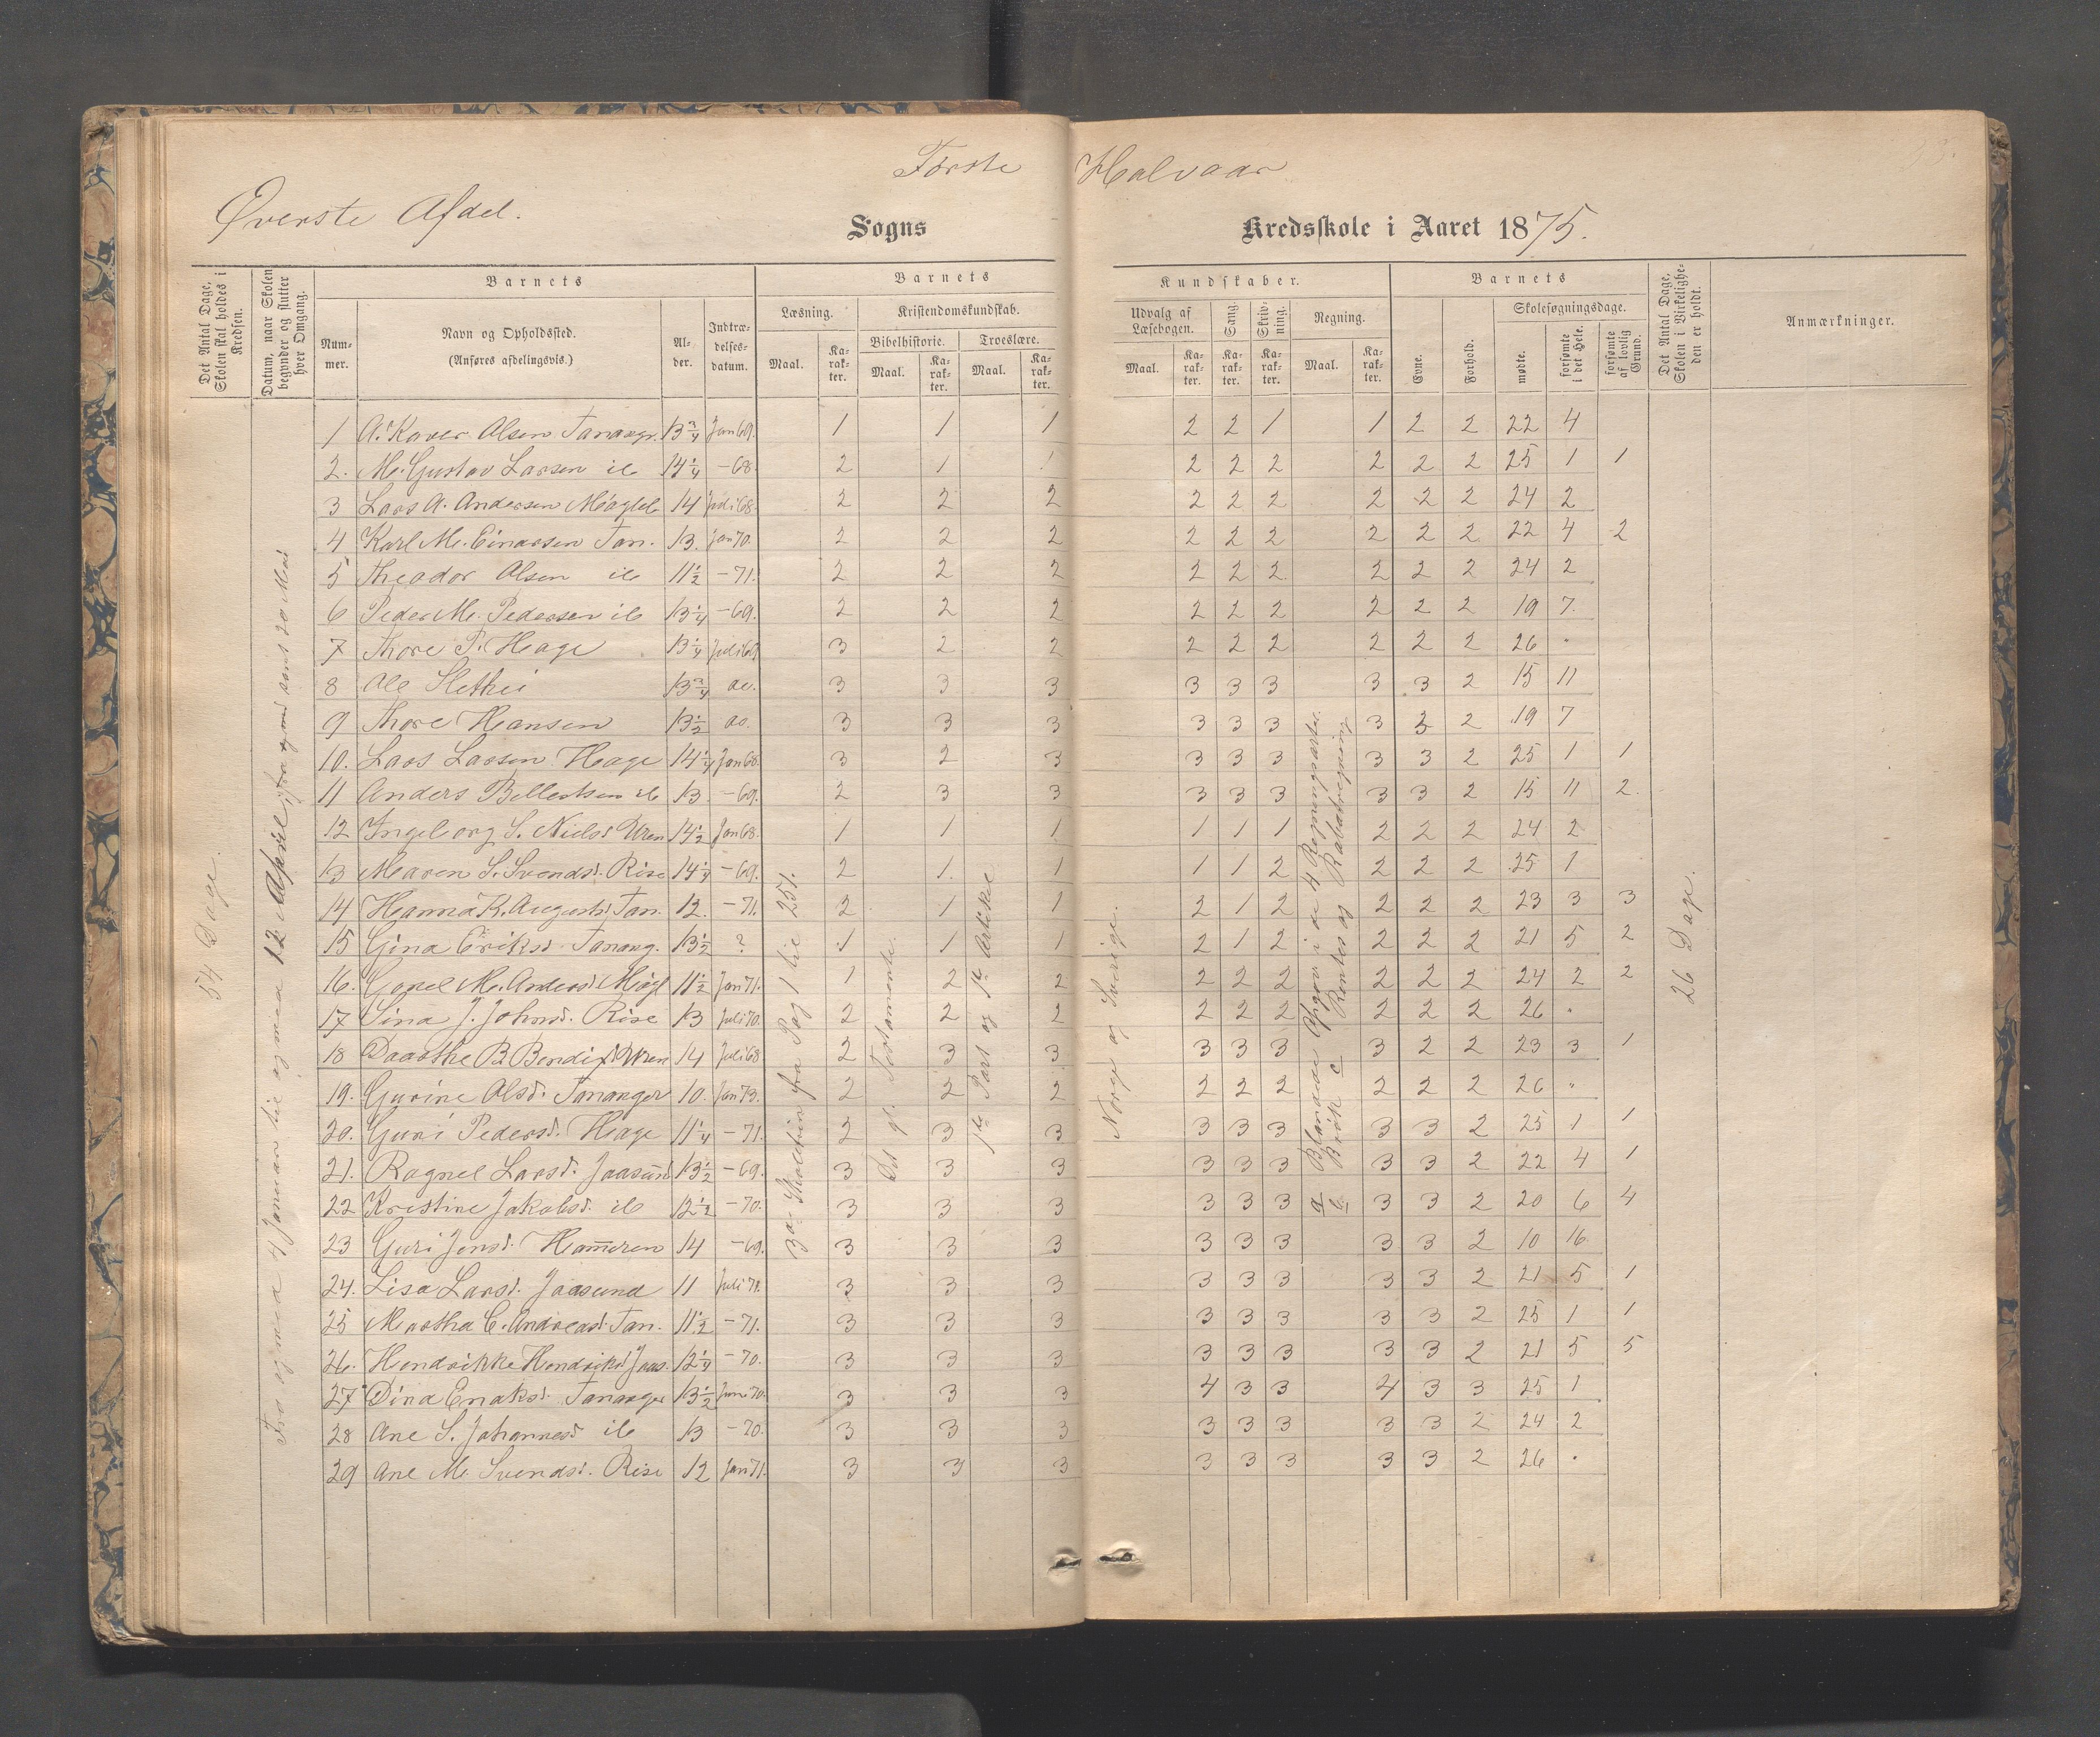 Første Halvaar
Øverste Afdel.
Sogns Kredsskole i Aaret 1875.
Det Antal Dage, Skolen skal holdes i Kredsen.
Datum, naar Skolen begynder og slutter hver Omgang.
Barnets
Nummer.
Navn og Opholdssted.
(Anføres afdelingsvis.)
Alder.
Indtrædelsesdatum.
Barnets Kundskaber.
Læsning.
Maal.
Karakter.
Kristendomskundskab.
Bibelhistorie.
Maal.
Karakter.
Troeslære.
Maal.
Karakter.
Udvalg af Læsebogen.
Maal.
Karakter.
Sang.
Karakter.
Skrivning.
Karakter.
Regning.
Maal.
Karakter.
Barnets
Evne.
Forhold.
Skolesøgningsdage.
mødte.
forsømte i det Hele.
forsømte af lovlig Grund.
Det Antal Dage, Skolen i Virkeligheden er holdt.
Anmærkninger.
54 Dage.
Fra og med 4 Januar til og med 12 April, fra og med samt 20 Mai
3die Skoletrin fra Pag 1 til 251.
Det gl. Testamente.
1ste Part og 1ste Artikel
Norge og Sverige.
a Blandede Opgav i de 4 Regningsarter.
b Brøk c Rentes og Rabatregning
26 Dage.
1 A. Kaver Olsen Tananger. 13 3/4 Jan 69. 1 1 1 2 2 1 1 2 2 22 4
2. M. Gustav Larsen ib 14 1/4 -68. 2 1 1 2 2 2 2 2 2 25 1 1
3 Lars A. Andersen Møgleb 14 Juli 68. 2 2 2 2 2 2 2 2 2 24 2
4 Karl M. Einarsen Tan. 13. Jan 70. 2 2 2 2 2 2 2 2 2 22 4 2
5 Theodor Olsen ib 11 1/2 -71. 2 2 2 2 2 2 2 2 2 24 2
6 Peder M. Pedersen ib 13 1/4 -69. 2 2 2 2 2 2 2 2 2 19 7.
7 Thore P. Hage 13 1/4 Juli 69 3 2 2 2 2 2 2 2 2 26 "
8 Ole Slethei 13 3/4 do. 3 3 3 3 3 3 3 3 2 15 11
9 Thore Hansen 13 1/2 do. 3 3 3 3 3 3 3 3 2 19 7
10. Lars Larsen Hage 14 1/4 Jan 68. 3 2 3 3 3 3 3 3 2 25 1 1
11 Anders Bellestsen ib 13. -69. 2 3 3 3 3 3 3 3 2 15 11 2.
12 Ingeborg S. Nielsd. 14 1/2 Jan 68. 1 1 1 1 1 1 2 2 2 24 2
13 Maren S. Svendsd. Rise 14 1/4 -69. 2 1. 1 1 1 2 2 2 2 25 1
14 Hanna K. Augustsd. Tan. 12. -71. 2 1 1 2 1 2 2 2 2 23 3 3
15 Gina Eriksd. Tanang. 13 1/2 ? 1 1 1 2 1 2 2 2 2 21 5 2
16. Gonel M. Andersd. Møgl 11 1/2 Jan 71. 1 2 2 2 2 2 2 2 2 24 2 2
17 Sina J. Johnsd. Rise 13 Juli 70. 2 2 2 2 2 2 2 2 2 26 "
18 Daarthe B. Bendixd. 14 Juli 68 2 3 3 3 3 3 3 2 2 23 3 1
19. Gurine Olsd. Tananger 10. Jan 73. 2 2 2 2 2 2 2 2 2 26 "
20. Guri Pedersd. Hage 11 1/4 -71. 2 3 3 3 3 3 3 3 2 25 1 1
21. Ragnel Larsd. Jaasund 13 1/2 -69. 3 3 3 3 3 3 3 3 2 22 4 1
22 Kristine Jakobsd. ib 12 1/2 -70. 3 3 3 3 3 3 3 3 2 20 6 4
23 Guri Jensd. Hammeren 14 -69. 3 3 3 3 3 3 3 3 2 10 16
24. Lisa Larsd. Jaasund 11 Juli 71. 3 3 3 3 3 3 3 3 2 21 5 1
25 Martha E. Andreasd. Tan. 11 1/2 -71. 3 3 3 3 3 3 3 3 2 25 1 1
26. Hendrikke Hendriksd. Jaas. 12 1/4 -70. 3 3 3 3 3 3 3 3 2 21 5 5
27 Dina Enoksd. Tananger 13 1/2 Juni 70. 3 3 3 4 3 3 4 3 3 25 1
28 Ane S. Johannesd. ib 13 -70. 3 3 3 3 3 3 3 3 2 24 2
29 Ane M. Svendsd. Rise 12 Jan 71. 3 3 3 3 3 3 3 3 2 26 "